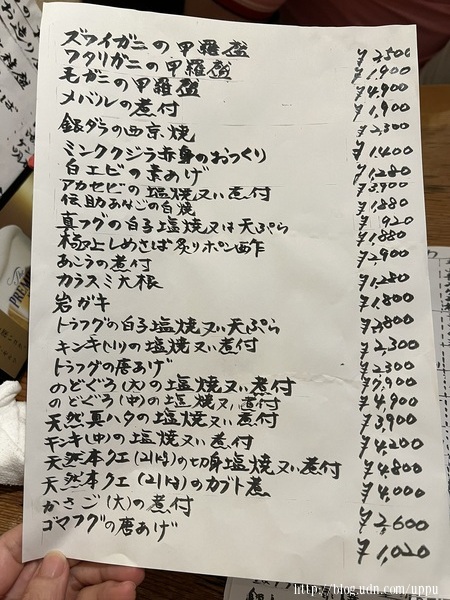 ズワイガニの甲羅盛 ¥3500
ワタリガニの甲羅盛 ¥1,900
毛ガニの甲羅盛 ¥4,900
メバルの煮付 ¥1,900
銀ダラの西京焼 ¥2,300
ミンククジラ赤身のおつくり ¥1,400
白エビの素あげ ¥1,280
アカセビの塩焼又は煮付 ¥3,900
伝助あなごの白焼 ¥1,880
真フグの白子塩焼又は天ぷら ¥920
極上しめさば炙りポン酢 ¥1,880
あこうの煮付 ¥2,900
カラスミ大根 ¥1,280
岩ガキ ¥1,800
トラフグの白子塩焼又は天ぷら ¥3,800
キンキ(小)の塩焼又は煮付 ¥2,300
トラフグの唐あげ ¥2,300
のどぐろ(大)の塩焼又は煮付 ¥7,900
のどぐろ(中)の塩焼又は煮付 ¥4,900
天然真ハタの塩焼又は煮付 ¥3,900
キンキ(中)の塩焼又は煮付 ¥4,200
天然本クエ(21kg)の切身塩焼又は煮付 ¥4,800
天然本クエ(21kg)のカブト煮 ¥4,000
かさご(大)の煮付 ¥2,600
ゴマフグの唐あげ ¥1,020
http://blog.udn.com/uppu